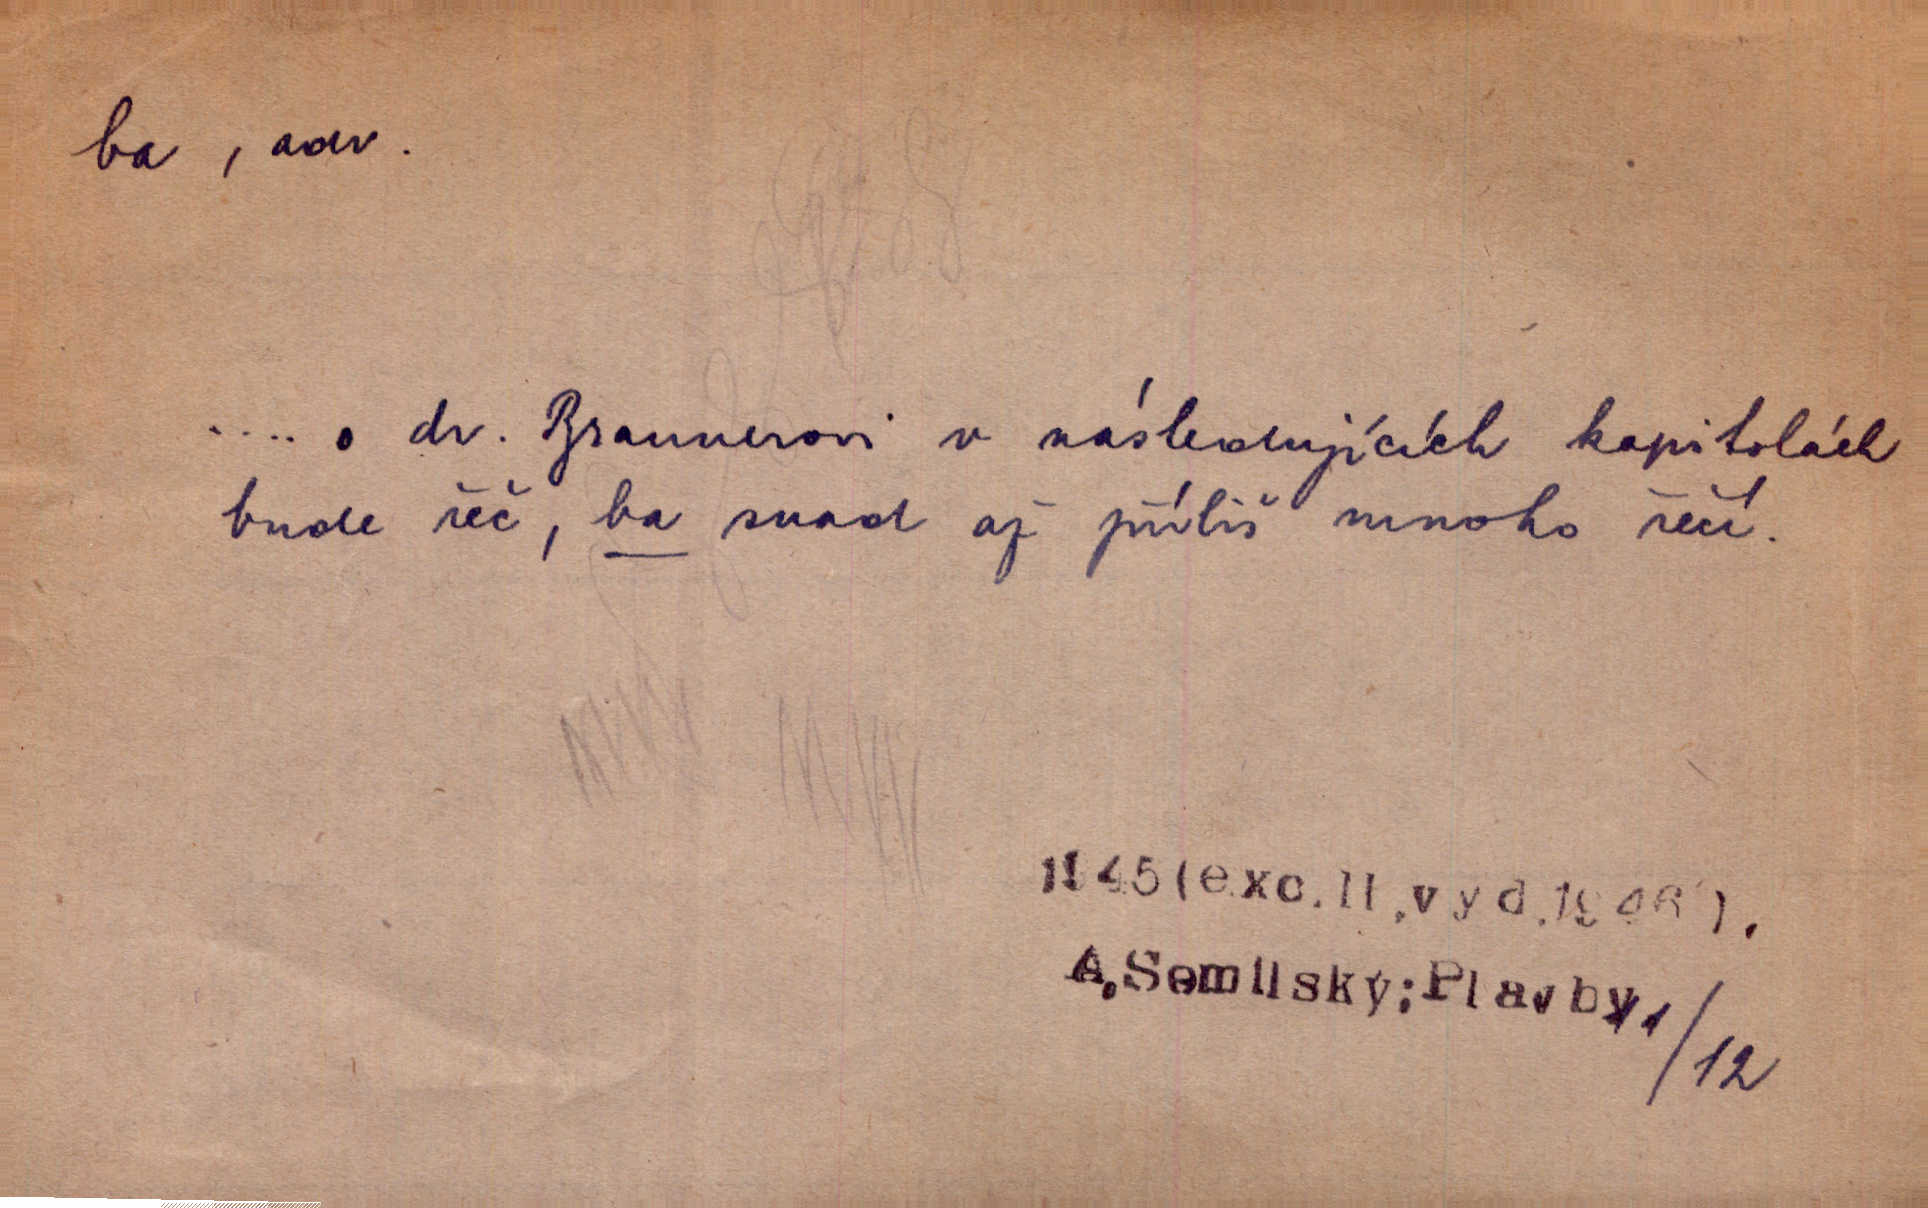 ba, adv.
.... o dr. Braunerovi v následujících kapitolách
bude řeč, ba snad až příliš mnoho řečí.
1945(exc.II.vyd.1946).
A.Semilský:Plavby 1
/12